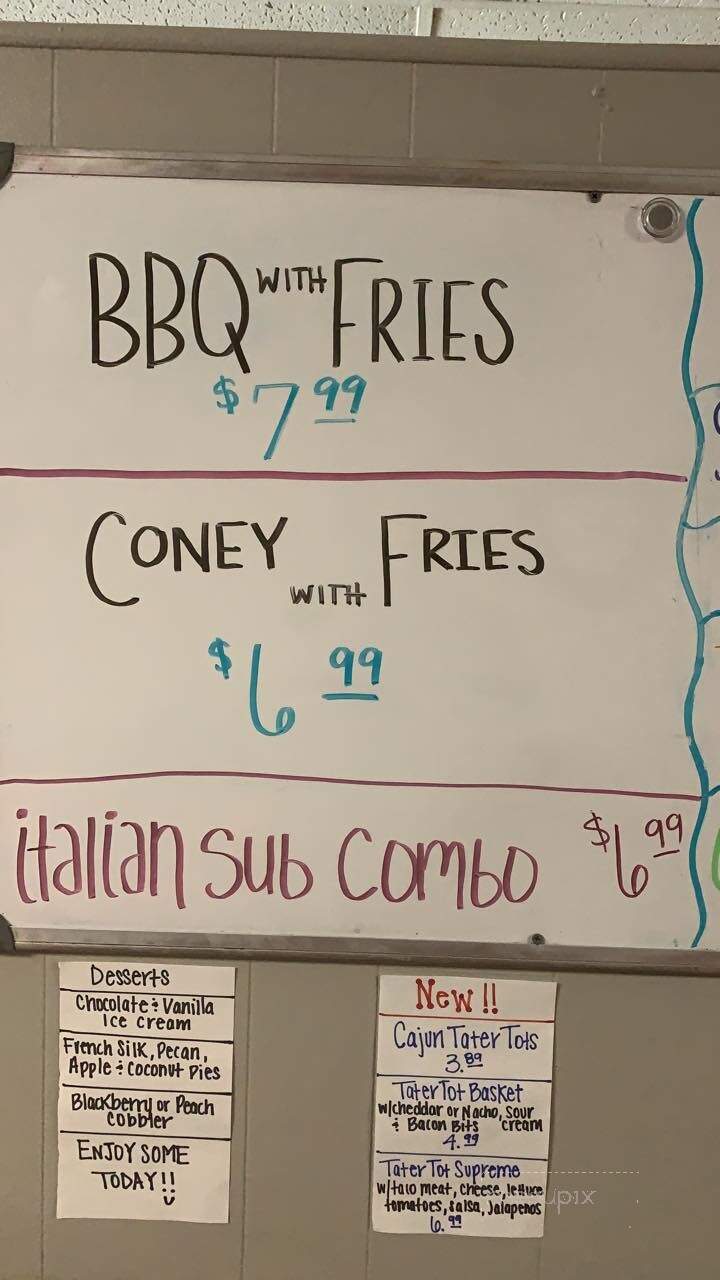 BBQ WITH FRIES
$7.99
CONEY WITH FRIES
$6 99
italian sub combo $6 99
Desserts
Chocolate & Vanilla
Ice cream
French Silk, Pecan,
Apple & Coconut Pies
Blackberry or Peach
cobbler
ENJOY SOME
TODAY!!
New!!
Cajun Tater Tots
3.89
Tater Tot Basket
w/cheddar or Nacho, Sour
& Bacon Bits cream
4.99
Tater Tot Supreme
w/taco meat, cheese, lettuce
tomatoes, salsa, Jalapenos
6.99